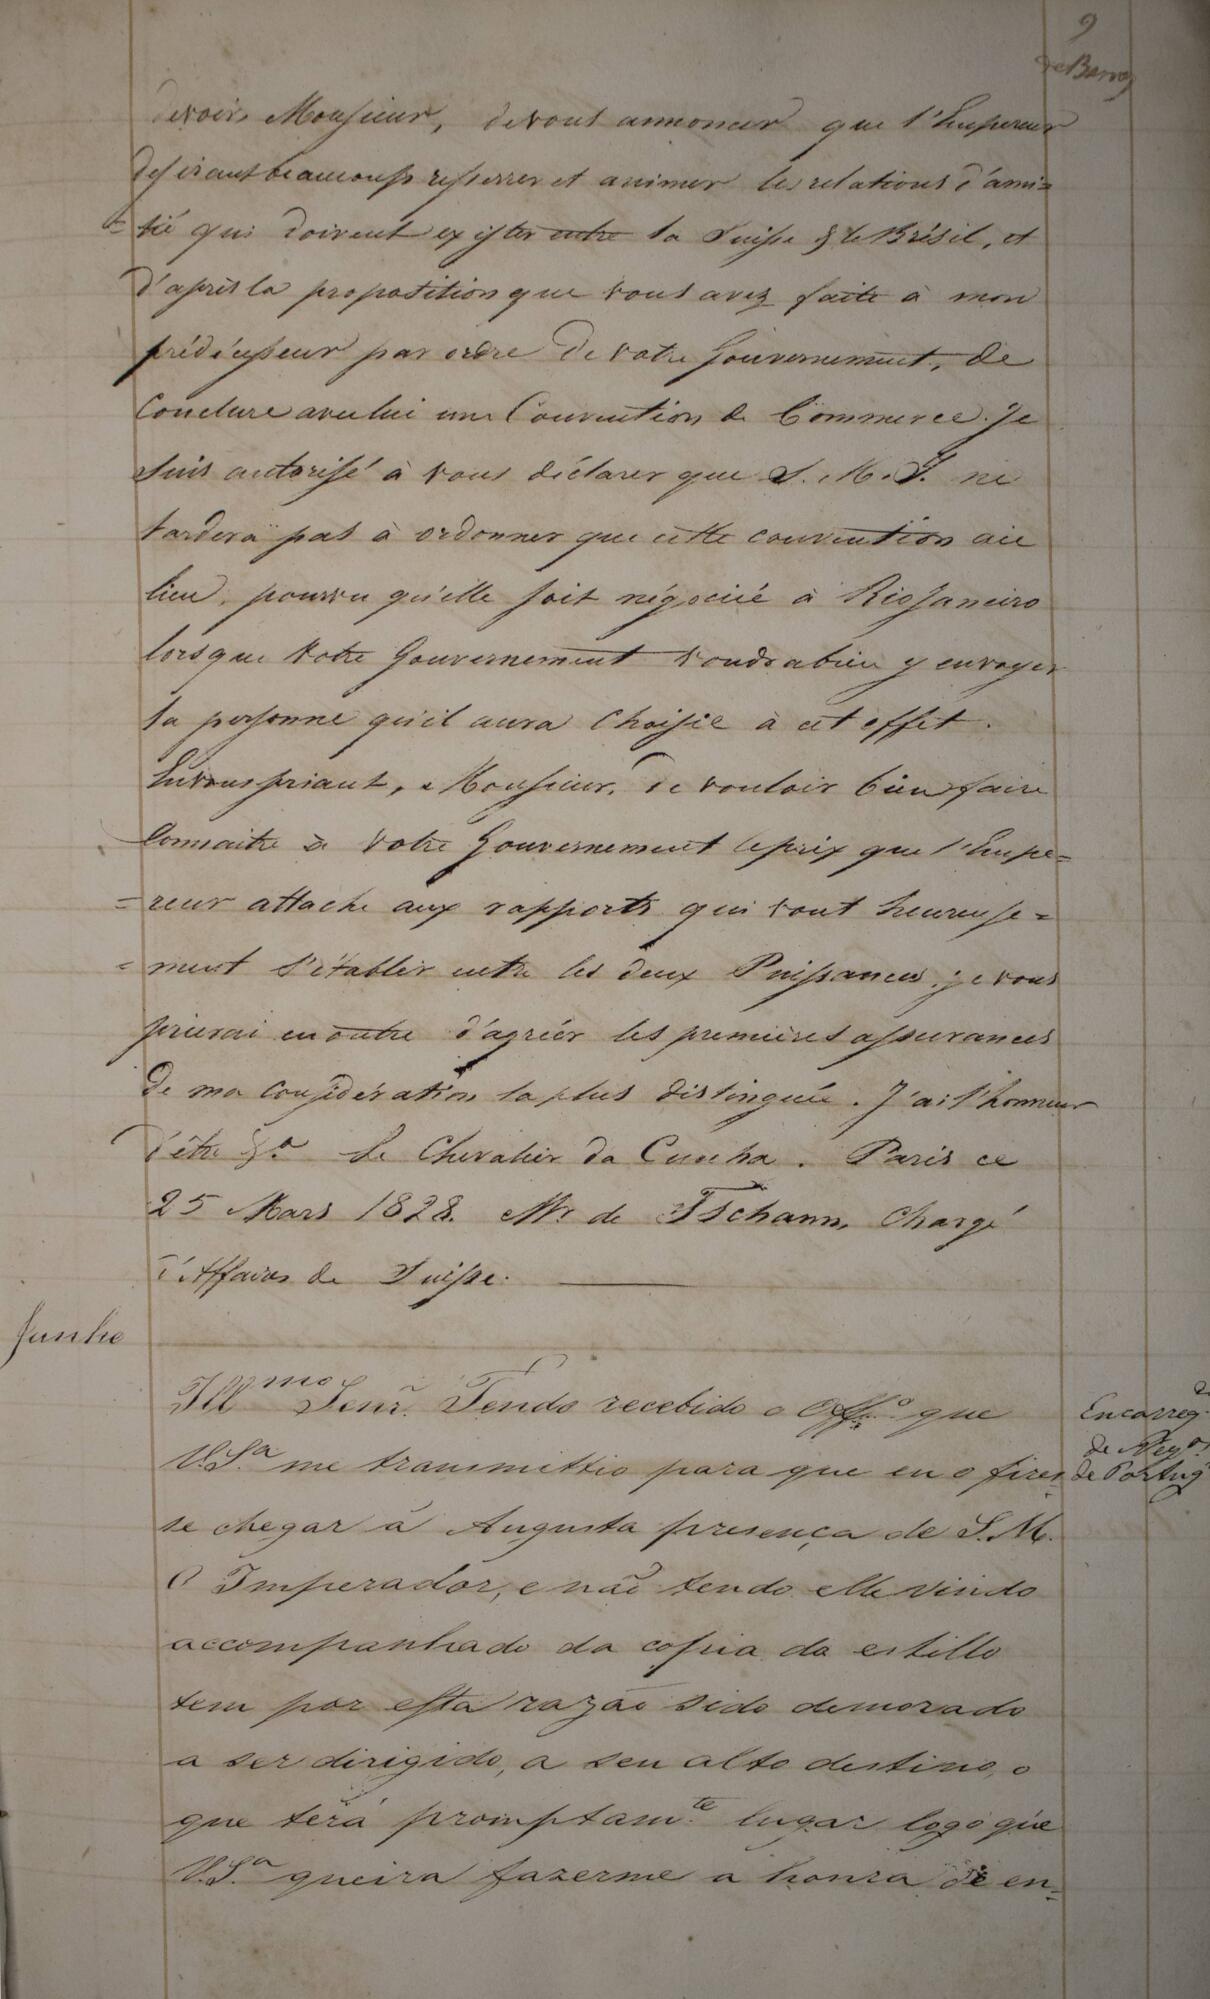 9
de Barros
devoir, Monsieur, de vous annoncer que l'Empereur
desirant beaucoup resserrer et animer les relations d'ami=
=tié qui doivent exister entre la Suisse & le Brésil, et
d'après la proposition que vous avez faite à mon
prédécesseur par ordre de votre Gouvernement, de
Conclure avec lui une Convention de Commerce. Je
suis autorisé à vous déclarer que S. M. I. ne
tardera pas à ordonner que cette convention aie
lieu, pourvu qu'elle soit négociée à Rio Janeiro
lorsque votre Gouvernement voudra bien y envoyer
la personne qu'il aura Choisie à cet effet.
En vous priant, Monsieur, de vouloir bien faire
Connaitre à votre Gouvernement le prix que l'Empe=
=reur attache aux rapports qui vont heureuse=
=ment s'établir entre les deux Puissances, je vous
prierai en outre d'agréer les premières assurances
de ma considération la plus distinguée. J'ai l'honneur
d'être &.ª Le Chevalier da Cunha. Paris ce
25 Mars 1828. Mr. de Tschann, Chargé
d'Affaires de Suisse.
Junho
Ill.mo Senr. Tendo recebido o Off.o que
V.S.a me transmittio para que eu o fizes=
se chegar á Augusta presença de S.M.
O Imperador, e não tendo elle vindo
accompanhado da copia do estillo
tem por esta razão sido demorado
a ser dirigido, a seu alto destino, o
que terá promptam.te lugar logo que
V.S.a queira fazerme a honra de en=
Encarreg.
de Neg.os
de Portug